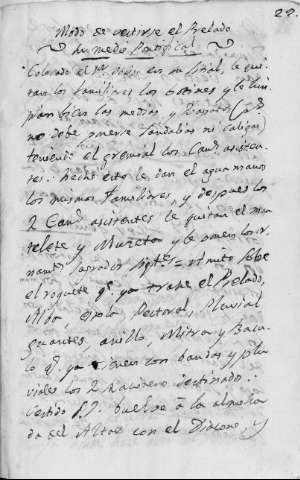 29.
Modo de vestirse el Prelado
de medio Pontifical
Colocado el Sr. en su sitial, le qui
tan los familiares los botines y le lim
pian bien las medias y zapatos (
no debe ponerse sandalias ni caligas)
teniendo el gremial los Can.s asisten
tes. hecho esto le dan el agua manos
los mesmos familiares, y despues los
2 Can.s asistentes le quitan el man
telete y Muzeta y le ponen los or
nam.tos sagrados sig.tes = Amito sobe
el roquete q.e ya trahe el Prelado,
Alba, Estola, Pectoral, Pluvial
guantes, anillo, Mitra y Bacu
lo q.e ya tienen con bandas y plu
viales los 2 Racioneros destinado.s
Vestido S.Y. buelve à la almoha
da del Altar con el Diacono, y